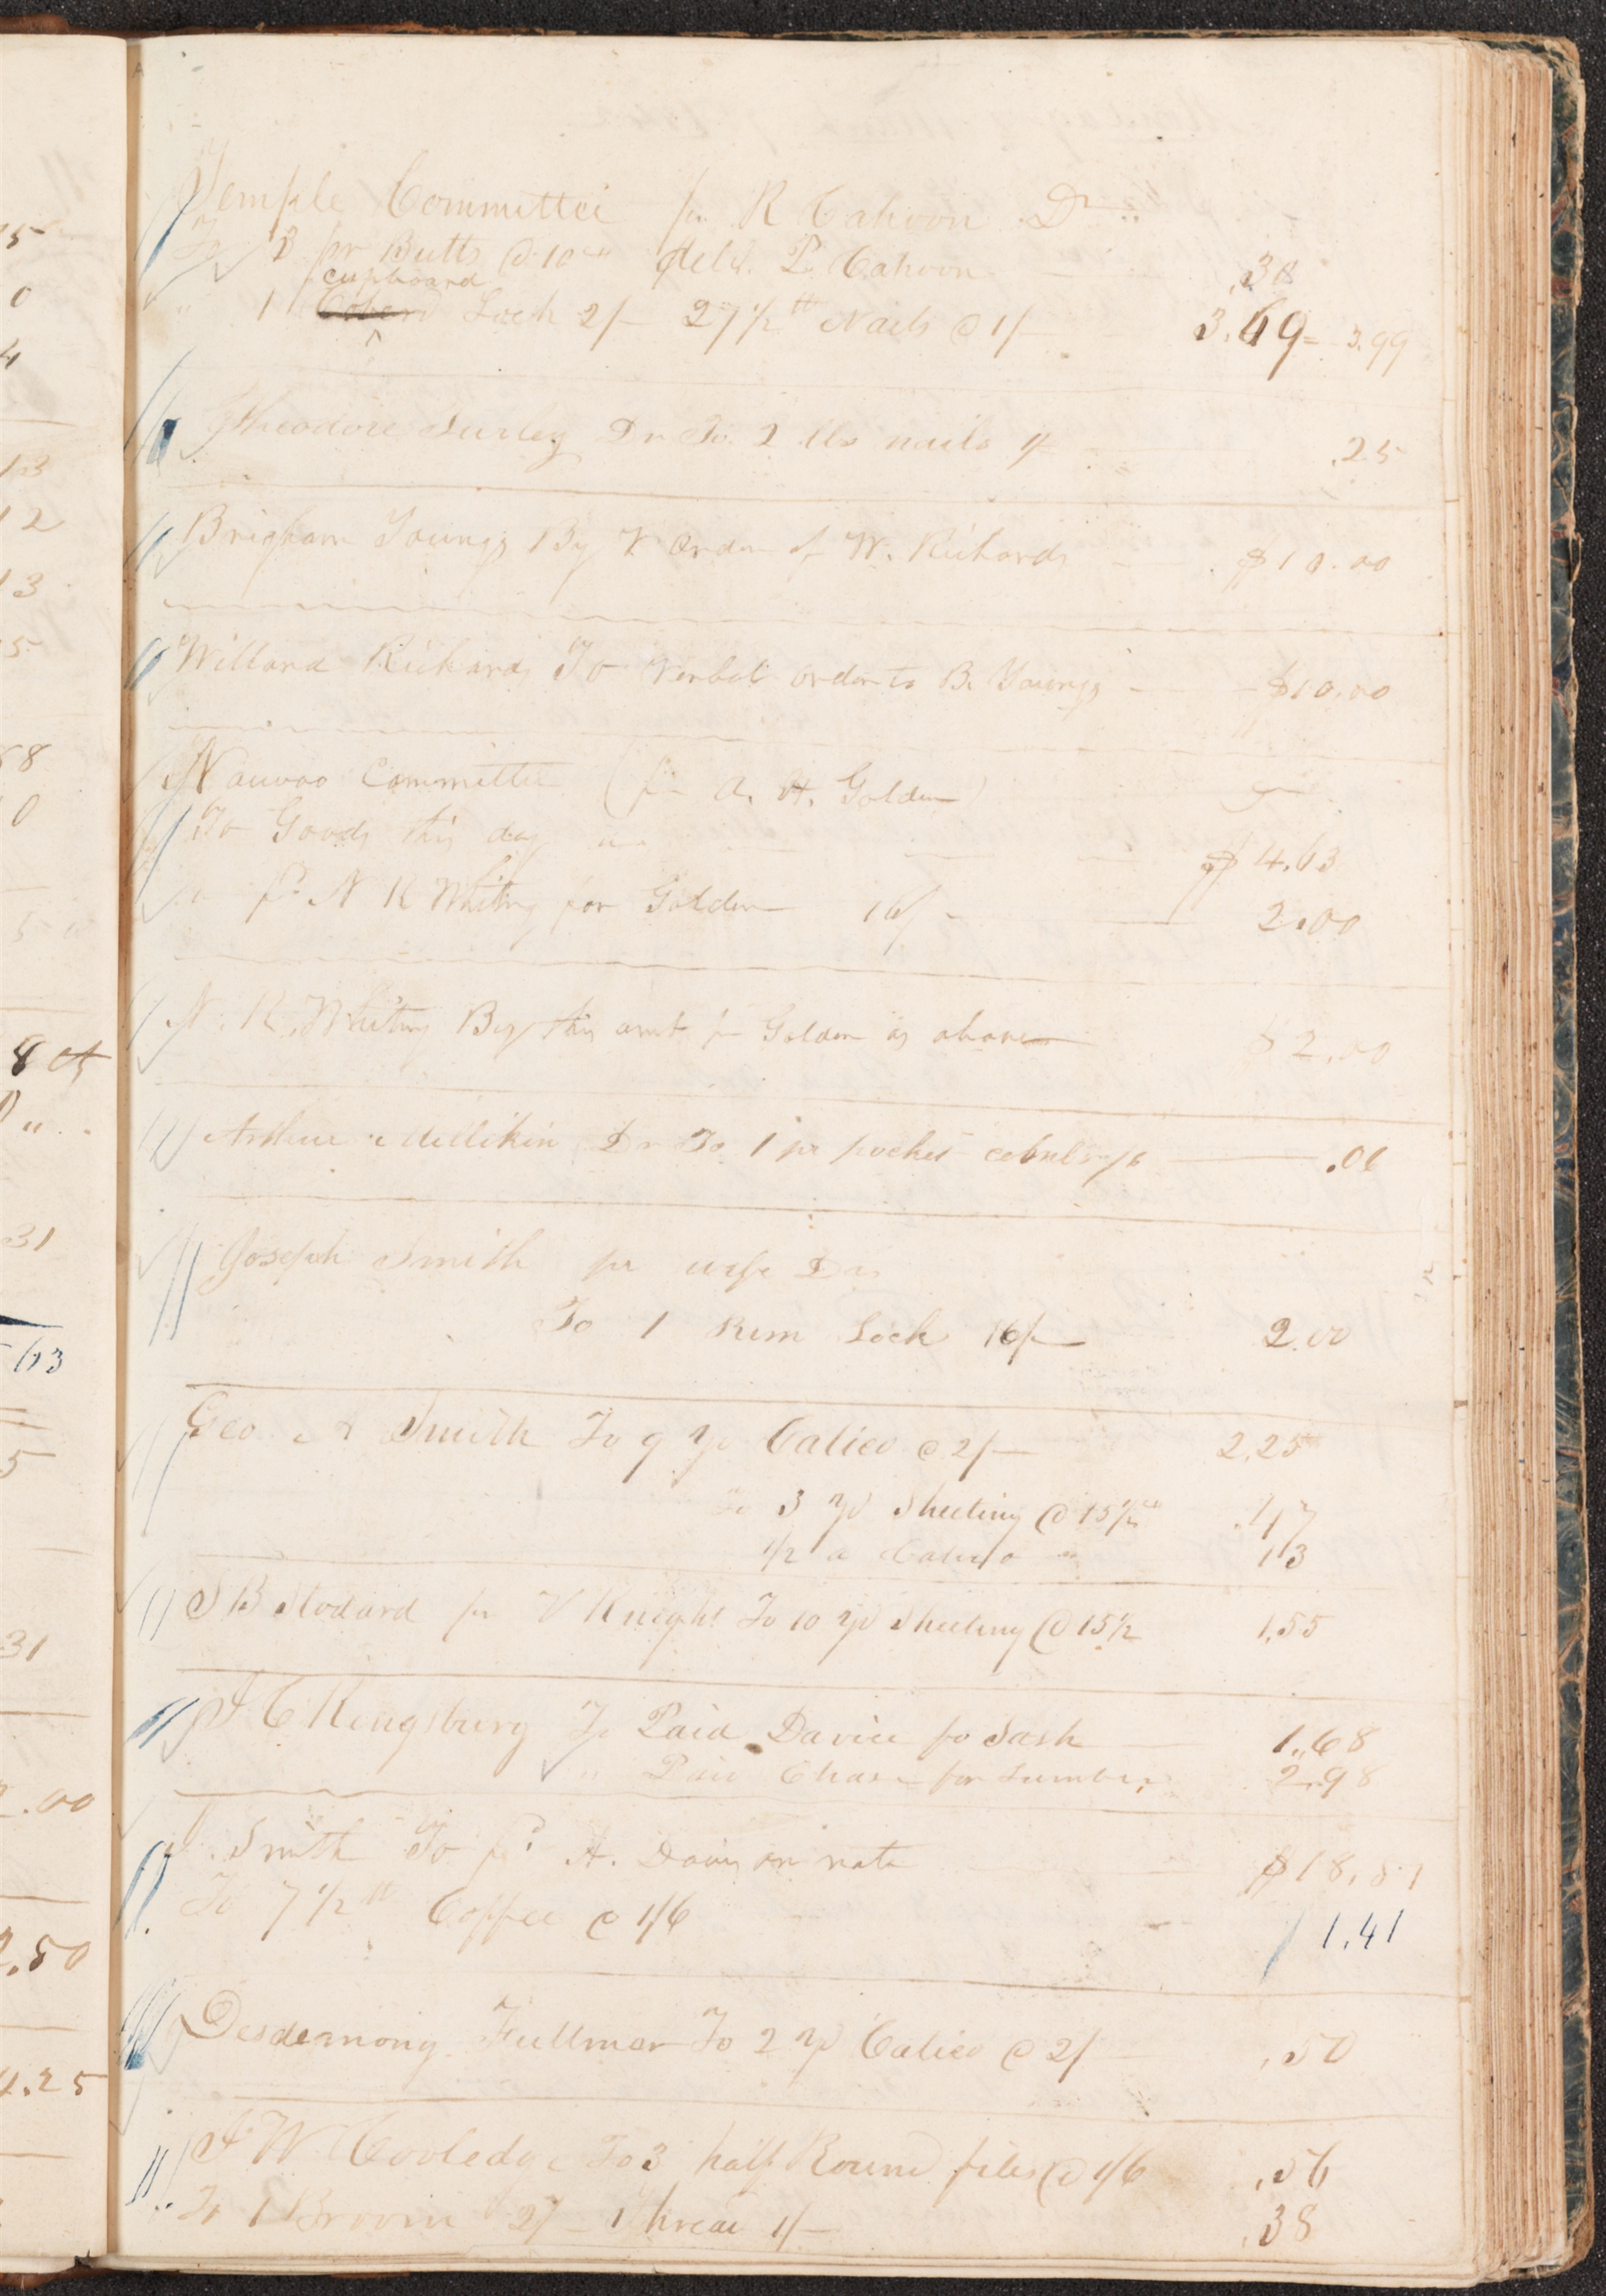 Temple Committee pr R Cahoon Dr
To 3 pr Butts @ 10 cts deld. P. Cahoon .38
cupboard
" 1 Lock 2/– 27 1/2 lb Nails @ 1/– 3.69 = 3.99
Theodore Turley Dr To 2 lbs nails 1/ .25
Brigham Young By V Order of W. Richards $10.00
Willard Richards To Verbal order to B. Young $10.00
Nauvoo Committee (pr A. H. Golden)
To Goods this day $4.63
" pd N R Whiting for Golden 16/– 2.00
N. R. Whiting By this amt pr Golden as above $2.00
Arthur Millikin Dr To 1 pr pocket /6 .06
Joseph Smith pr wife Dr
To 1 Rim Lock 16/– 2.00
Geo. A Smith To 9 yd Calico @ 2/– 2.25
To 3 yd Sheeting @ 15 1/2 cts .47
1/2 " Calico " 13
S B Stodard pr V Knight To 10 yd Sheeting @ 15 1/2 1.55
J C Kingsbury To Paid Davice for Sash 1.68
" Paid Chase for Lumber 2.98
J. Smith To pd A. Davis on note $18.51
To 7 1/2 lb Coffee @ 1/6 1.41
Desdemony Fullmer To 2 yd Calico @ 2/– .50
J W Cooledge To 3 half Round files @ 1/6 .56
To 1 Broom 2/– 1 thread 1/– .38